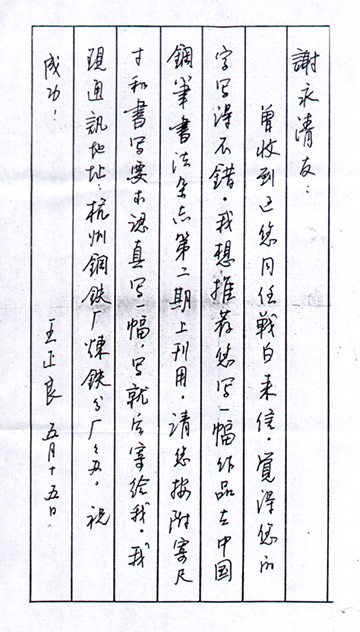 謝永清友：
曾收到过您同任戰白来信，覺得您的
字写得不錯。我想推荐您写一幅作品在中国
鋼筆書法杂志第二期上刊用，請您按附寄尺
寸和書写要求認真写一幅，写就后寄給我。我
現通訊地址：杭州鋼鉄厂煉鉄分厂。祝
成功！
王正良 五月十五日